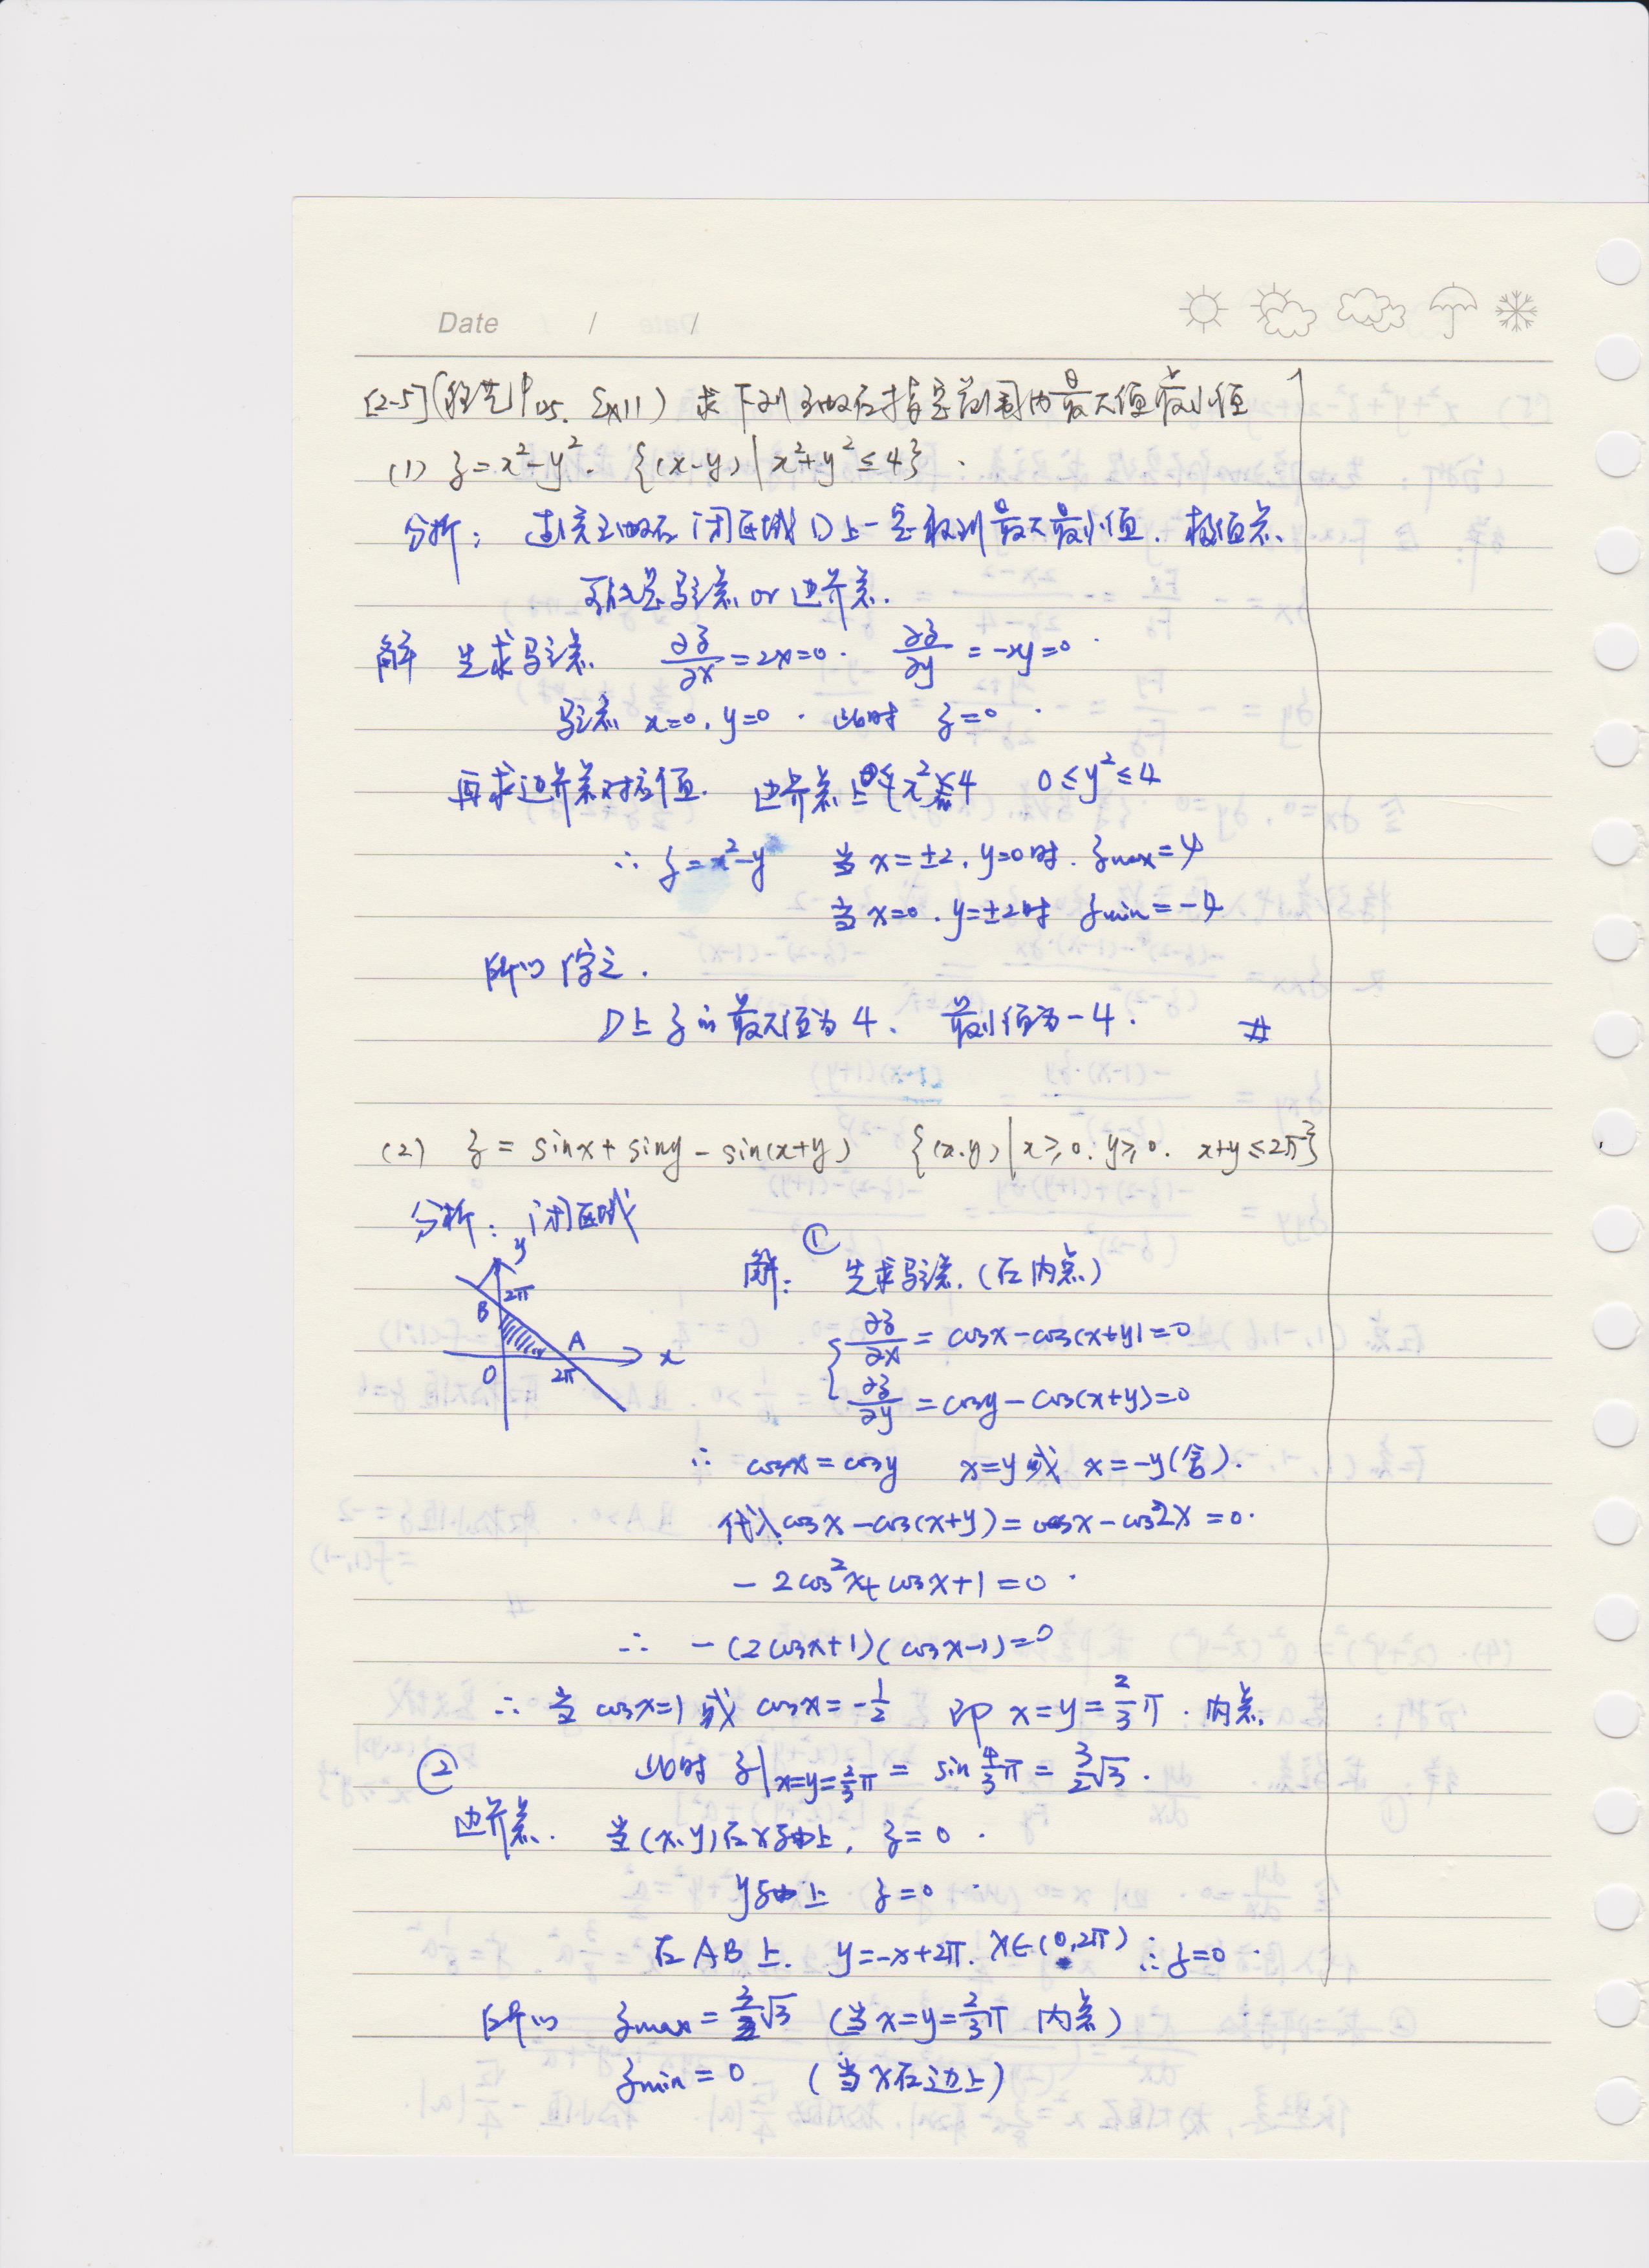 Date / /
[2-5] (程艺 P125. Ex11) 求下列函数在指定范围内最大值最小值
(1) z=x²-y². {(x-y)|x²+y²≤4}.
分析: 连续函数在闭区域D上一定取到最大最小值. 极值点
可能是驻点 or 边界点.
解 先求驻点 ∂z/∂x=2x=0. ∂z/∂y=-2y=0.
驻点 x=0, y=0. 此时 z=0.
再求边界点对应值. 边界点上 0≤x²≤4 0≤y²≤4
∴ z=x²-y² 当 x=±2, y=0时. zmax=4
当 x=0. y=±2时 zmin=-4
所以 综之.
D上z的最大值为4. 最小值为-4. #
(2) z=sinx+siny-sin(x+y) {(x.y)|x≥0. y≥0. x+y≤2π}
分析: 闭区域
y
2π
B
A
x
O
2π
① 解: 先求驻点. (在内点)
∂z/∂x=cosx-cos(x+y)=0
∂z/∂y=cosy-cos(x+y)=0
∴ cosx=cosy x=y 或 x=-y(舍).
代入 cosx-cos(x+y)=cosx-cos2x=0.
-2cos²x+cosx+1=0.
∴ -(2cosx+1)(cosx-1)=0
∴ 当 cosx=1 或 cosx=-1/2 即 x=y=2/3π. 内点.
此时 z|x=y=2/3π = sin 4/3π = 3/2√3.
② 边界点. 当(x,y)在x轴上, z=0.
y轴上 z=0.
在AB上. y=-x+2π. x∈(0,2π) ∴z=0.
所以 zmax=3/2√3 (当x=y=2/3π 内点)
zmin=0 (当x在边上)